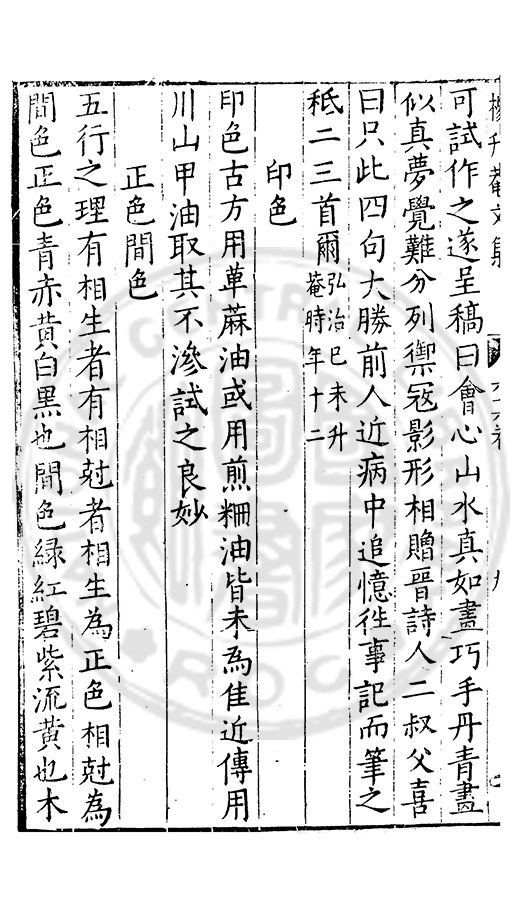 可試作之遂呈稿曰會心山水真如畫巧手丹青畫
似真夢覺難分列禦寇影形相贈晉詩人二叔父喜
曰只此四句大勝前人近病中追憶徃事記而筆之
秪二三首爾弘治巳未升
菴時年十二
印色
印色古方用萆蔴油或用煎粣油皆未為佳近傳用
川山甲油取其不滲試之良妙
正色間色
五行之理有相生者有相尅者相生為正色相尅為
間色正色青赤黃白黑也間色綠紅碧紫流黃也木